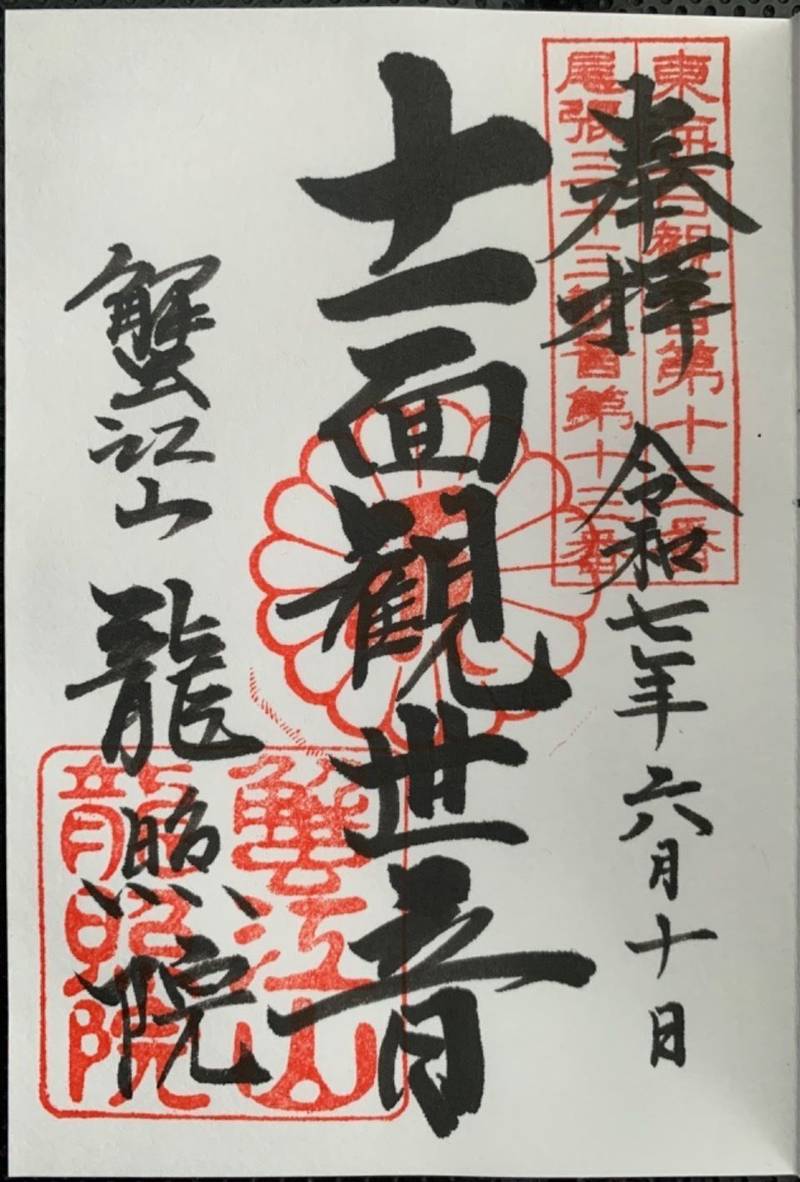 奉拝
令和七年六月十日
東海百観音第十三番
尾張三十三観音第十三番
十一面観世音
蟹江山
龍照院
蟹江山
龍照院